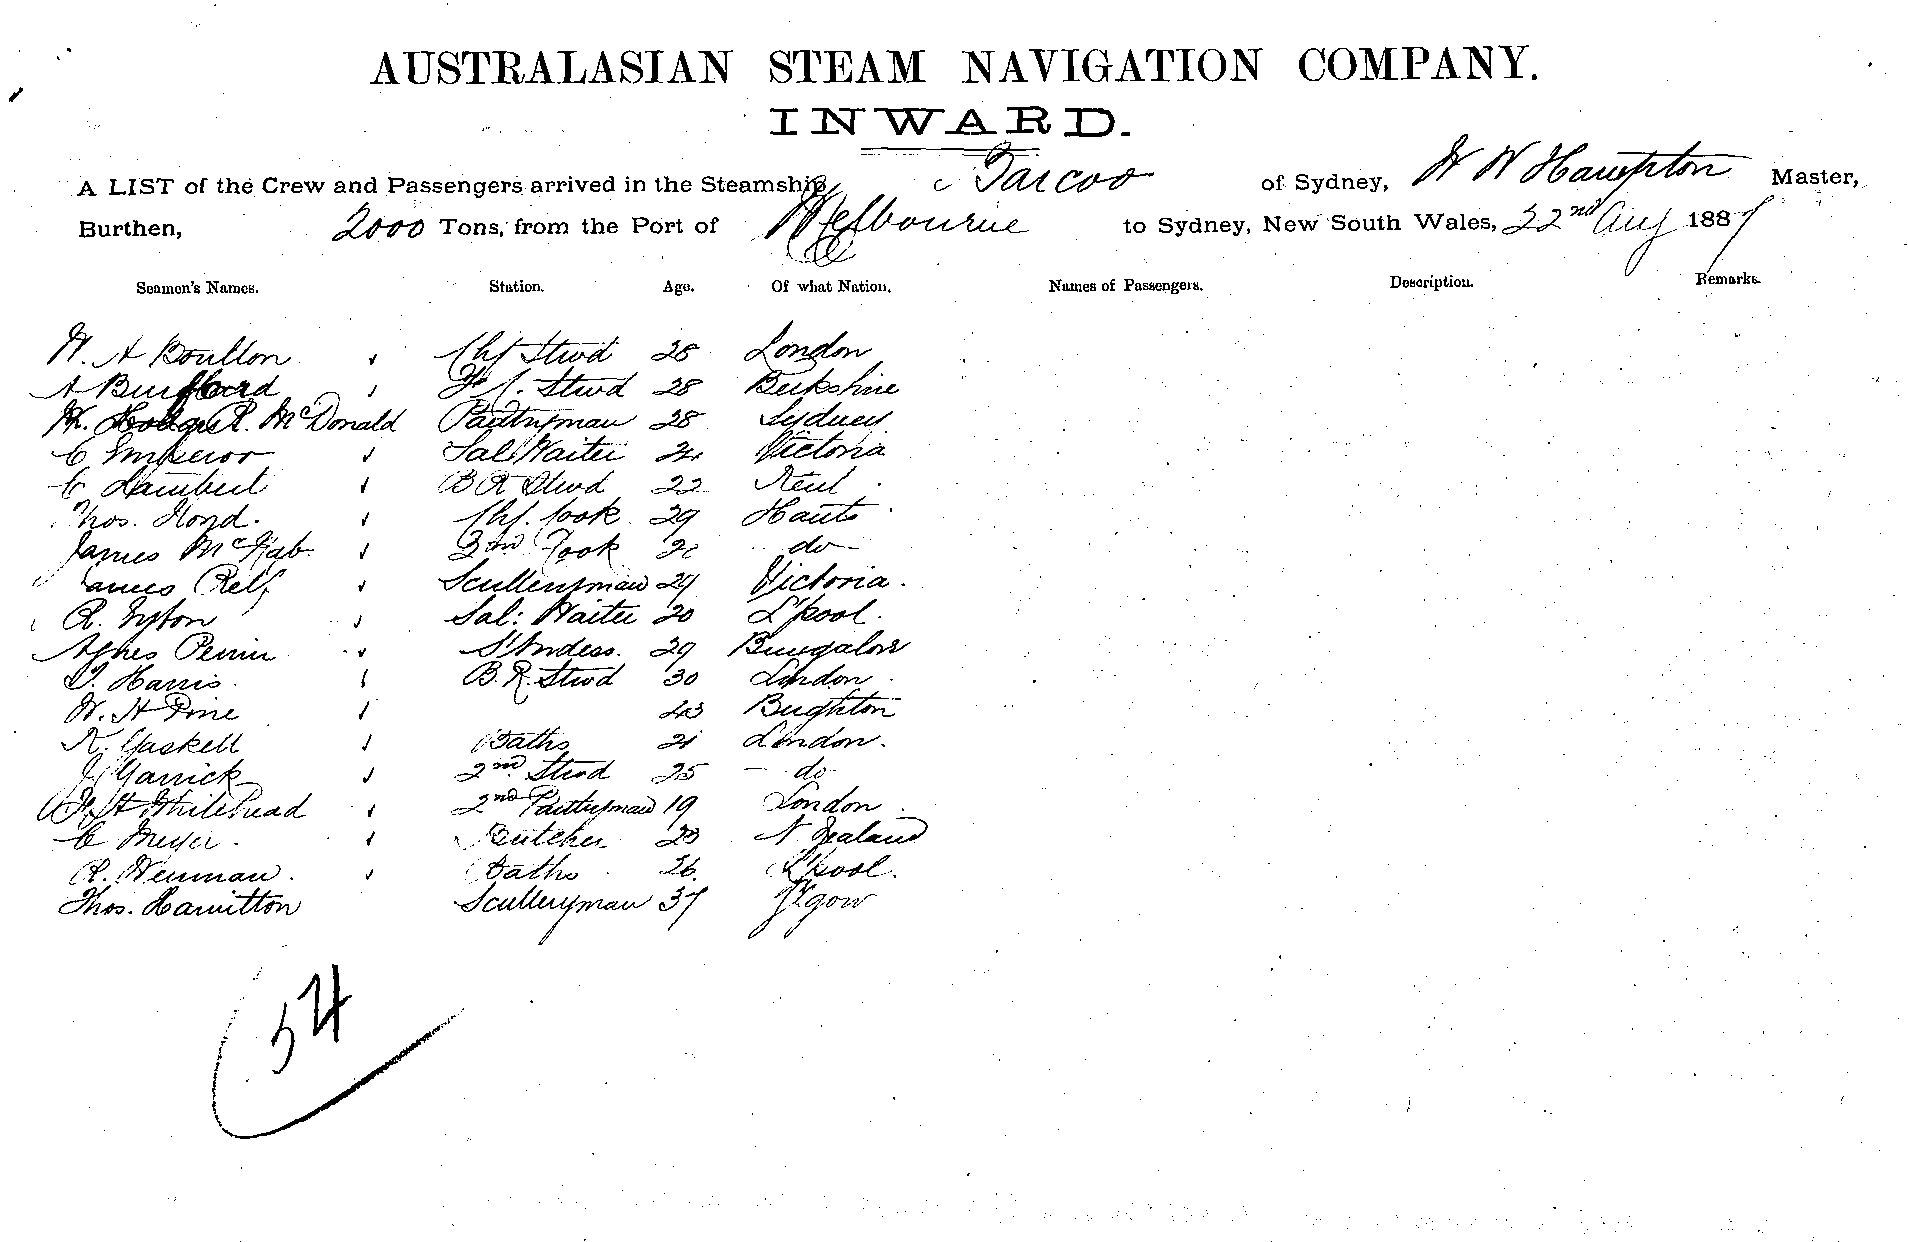 AUSTRALASIAN STEAM NAVIGATION COMPANY.
INWARD.
A LIST of the Crew and Passengers arrived in the Steamship Barcoo of Sydney, W W Hampton Master,
Burthen, 2000 Tons, from the Port of Melbourne to Sydney, New South Wales, 22nd Aug 1887
Seamen's Names. Station. Age. Of what Nation. Names of Passengers. Description. Remarks.
W. A Boullon Chf Stwd 28 London
A Stwd 28 Berkshire
R. McDonald Pantryman 28 Sydney
C Emperor Sal Waiter Victoria
C Lambert B R Stwd 22 Kent
Thos. Chf. Cook 29 Hants
James McNab Cook do
James Relf Sculleryman 29 Victoria.
R. Sal: Waiter 20 L'pool.
Agnes Perrin Stwdess. 29 Bungalore
T. Harris. B. R. Stwd 30 London
W. H Pine 43 Brighton
Gaskell Baths 21 London.
J Garrick 2nd Stwd 25 do
H Whitehead 2nd Pantryman 19 London
C Meyer. Butcher 23 N Zealand
R. Newman. Baths 26. L'pool.
Thos. Hamilton Sculleryman 37 G'gow
54